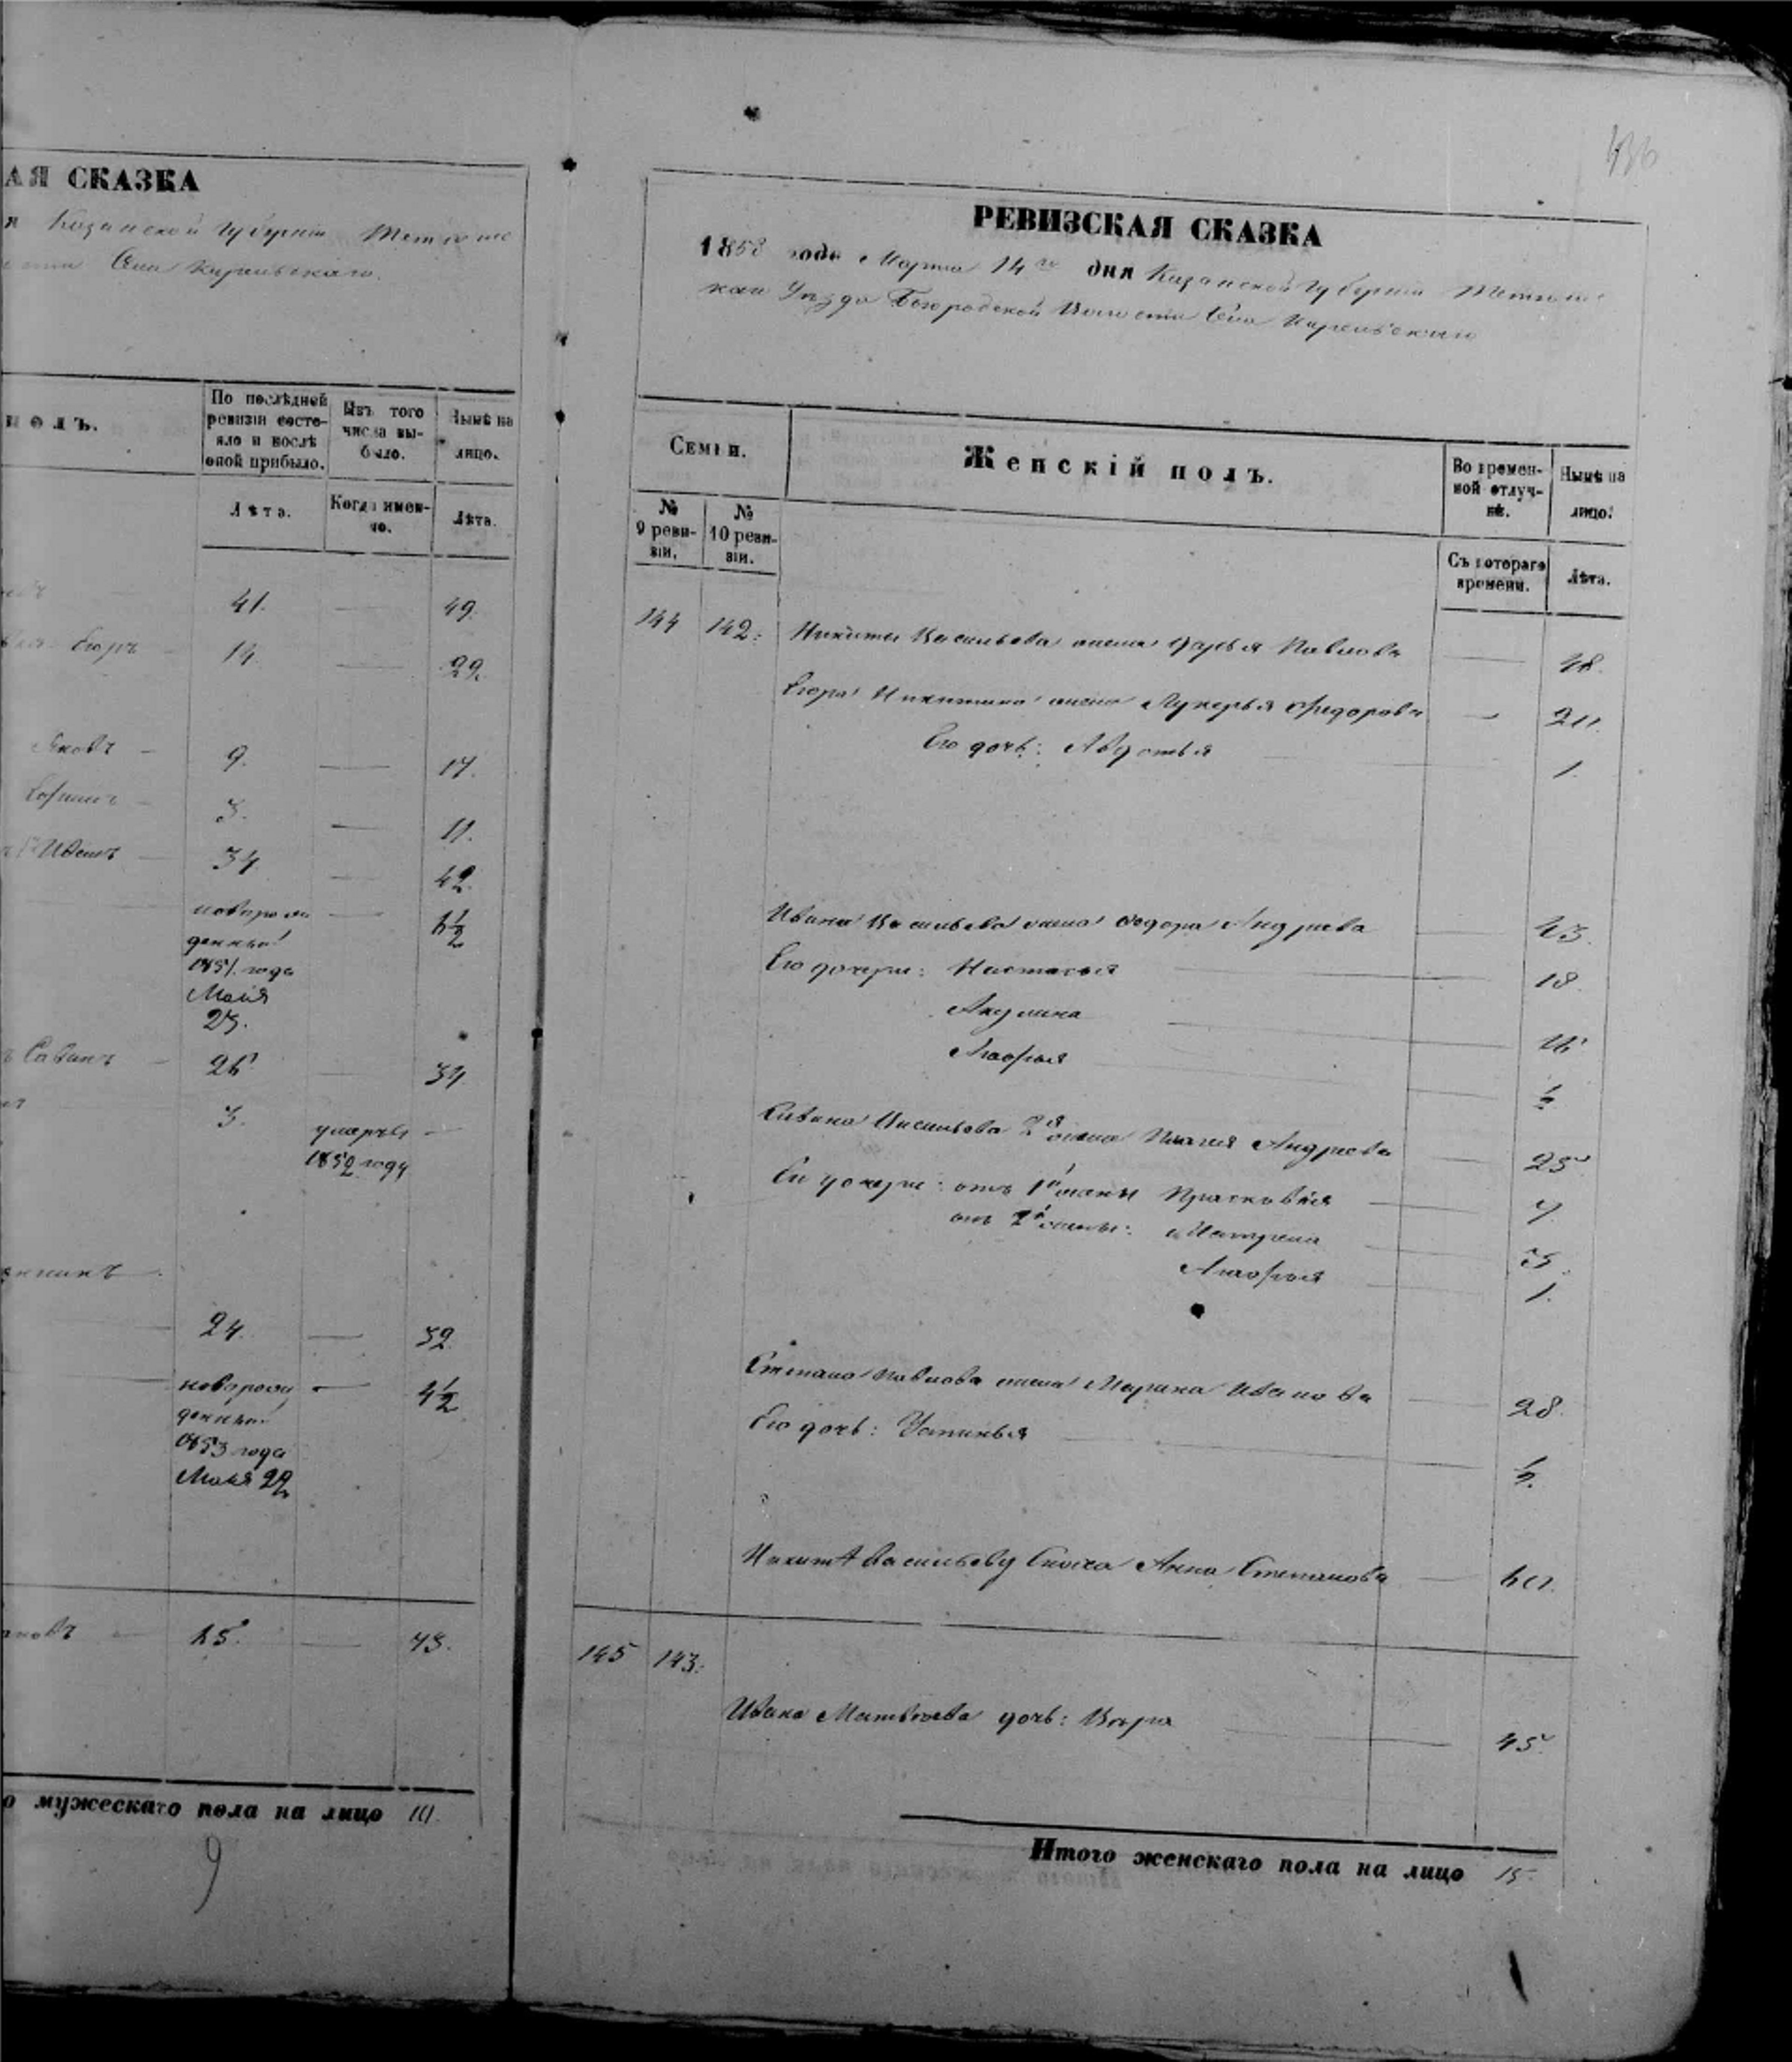 АЯ СКАЗКА
я Казанской Губерніи Тетюшс
Села Кирельскаго.
полъ.
По послѣдней ревизіи состояло и послѣ оной прибыло.
Изъ того числа выбыло.
Нынѣ на лицо.
Лѣта.
Когда именно.
Лѣта.
41. 49.
Егоръ 14. 22.
Яковъ 9. 17.
3. 11.
Иванъ 34. 42.
новорож
денный
1851 года
Маія
23.
6½
Саванъ 26 34
3. умеръ
1852 году
24. 32.
новорож
денный
1853 года
Маія 22
4½
о мужескаго пола на лицо 10.
9
436
РЕВИЗСКАЯ СКАЗКА
1858 года Марта 14го дня Казанской Губерніи Тетюшс
каго Уѣзда Богородской Волости Села Кирельскаго
Семьи.
Женскій полъ.
Во времен-
ной отлуч-
кѣ.
Нынѣ на
лицо.
№
9 реви-
зіи.
№
10 реви-
зіи.
Съ котораго
времени.
Лѣта.
144 142. Никиты Васильева жена Дарья Павлова 48.
Егора Никитина жена Лукерья Федорова 20.
Его дочь: Авдотья 1.
Ивана Васильева жена Федора Андреева 43.
Его дочери: Настасья 18.
Акулина 16
Агафья ½
Савана Васильева 2я жена Андреева 25
Ея дочери: отъ 1й жены Прасковья 7.
отъ 2й жены: Матрена 3.
Агафья 1.
Степана Павлова жена Марина Иванова 28.
Его дочь: Устинья ½
Никитѣ Васильеву Сноха Анна Степанова 60.
145 143.
Ивана Матвѣева дочь: Вѣра 45.
Итого женскаго пола на лицо 15.